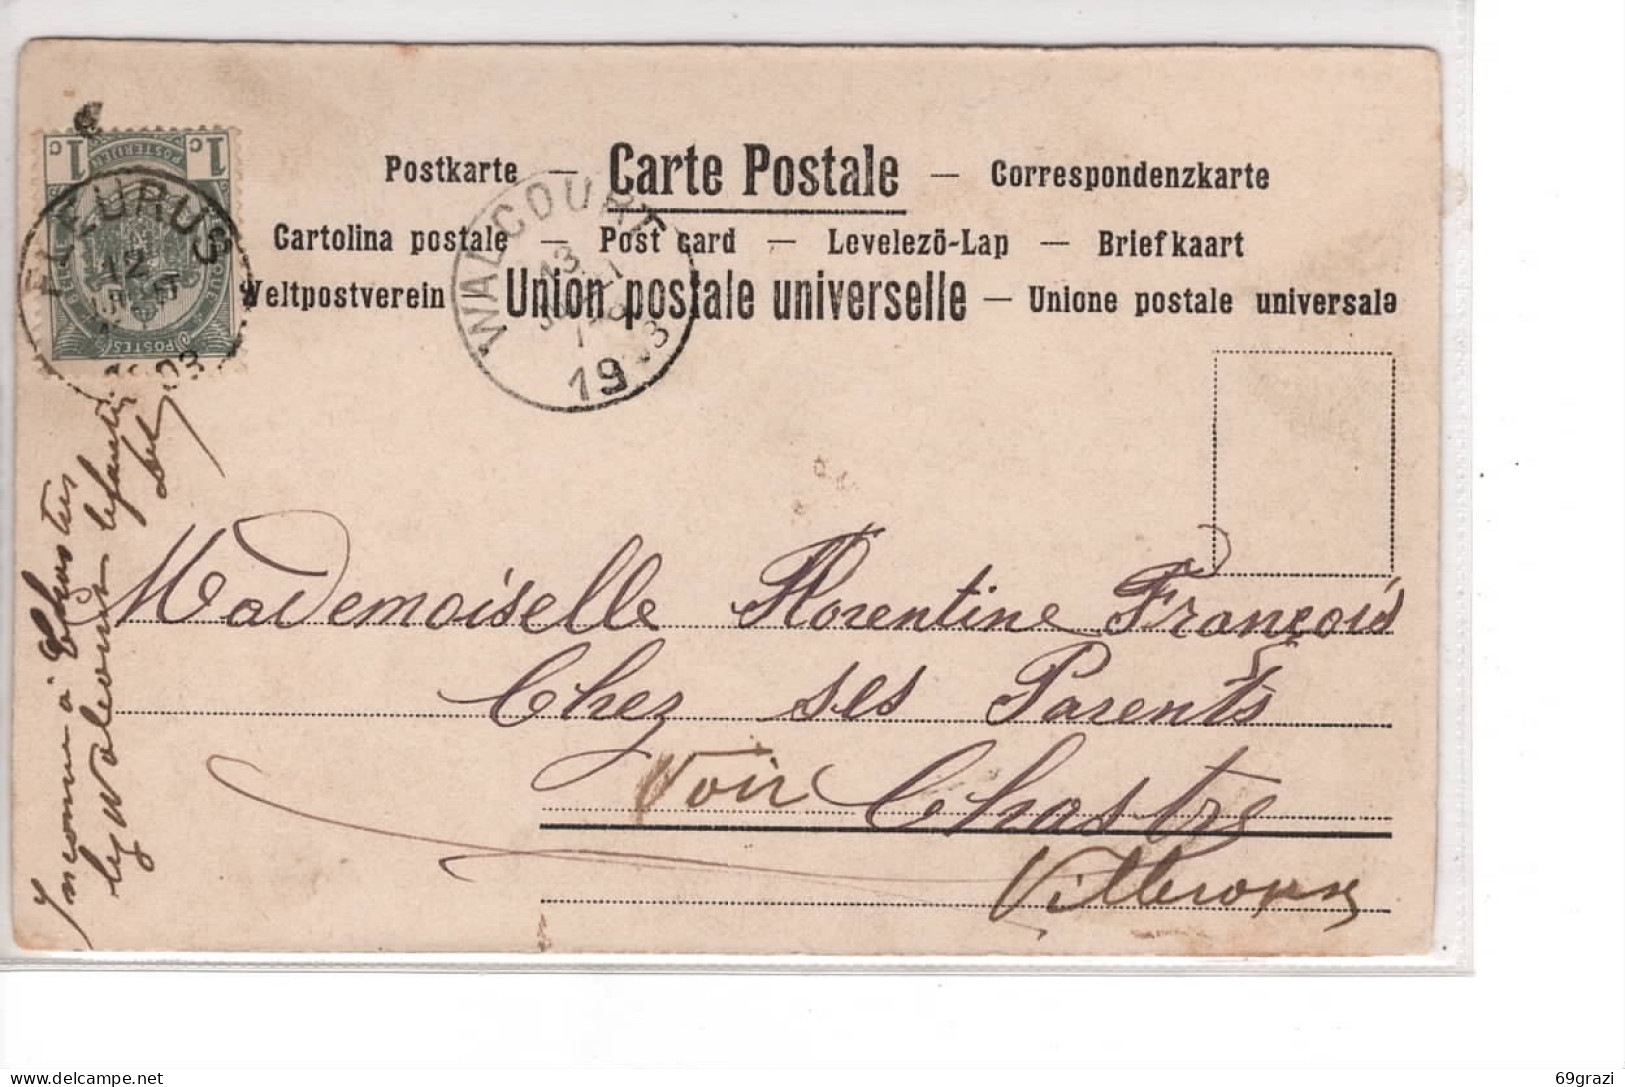 Postkarte — Carte Postale — Correspondenzkarte
Cartolina postale — Post card — Levelező-Lap — Briefkaart
Weltpostverein Union postale universelle — Unione postale universale
1c POSTERIJEN 1c
POSTES
FLEURUS
12
03
WALCOURT
13
7-8
1903
Mademoiselle Florentine François
Chez ses Parents
Voir Chastre
Villeroux
Inconnu à Chastres
lez Walcourt
69grazi